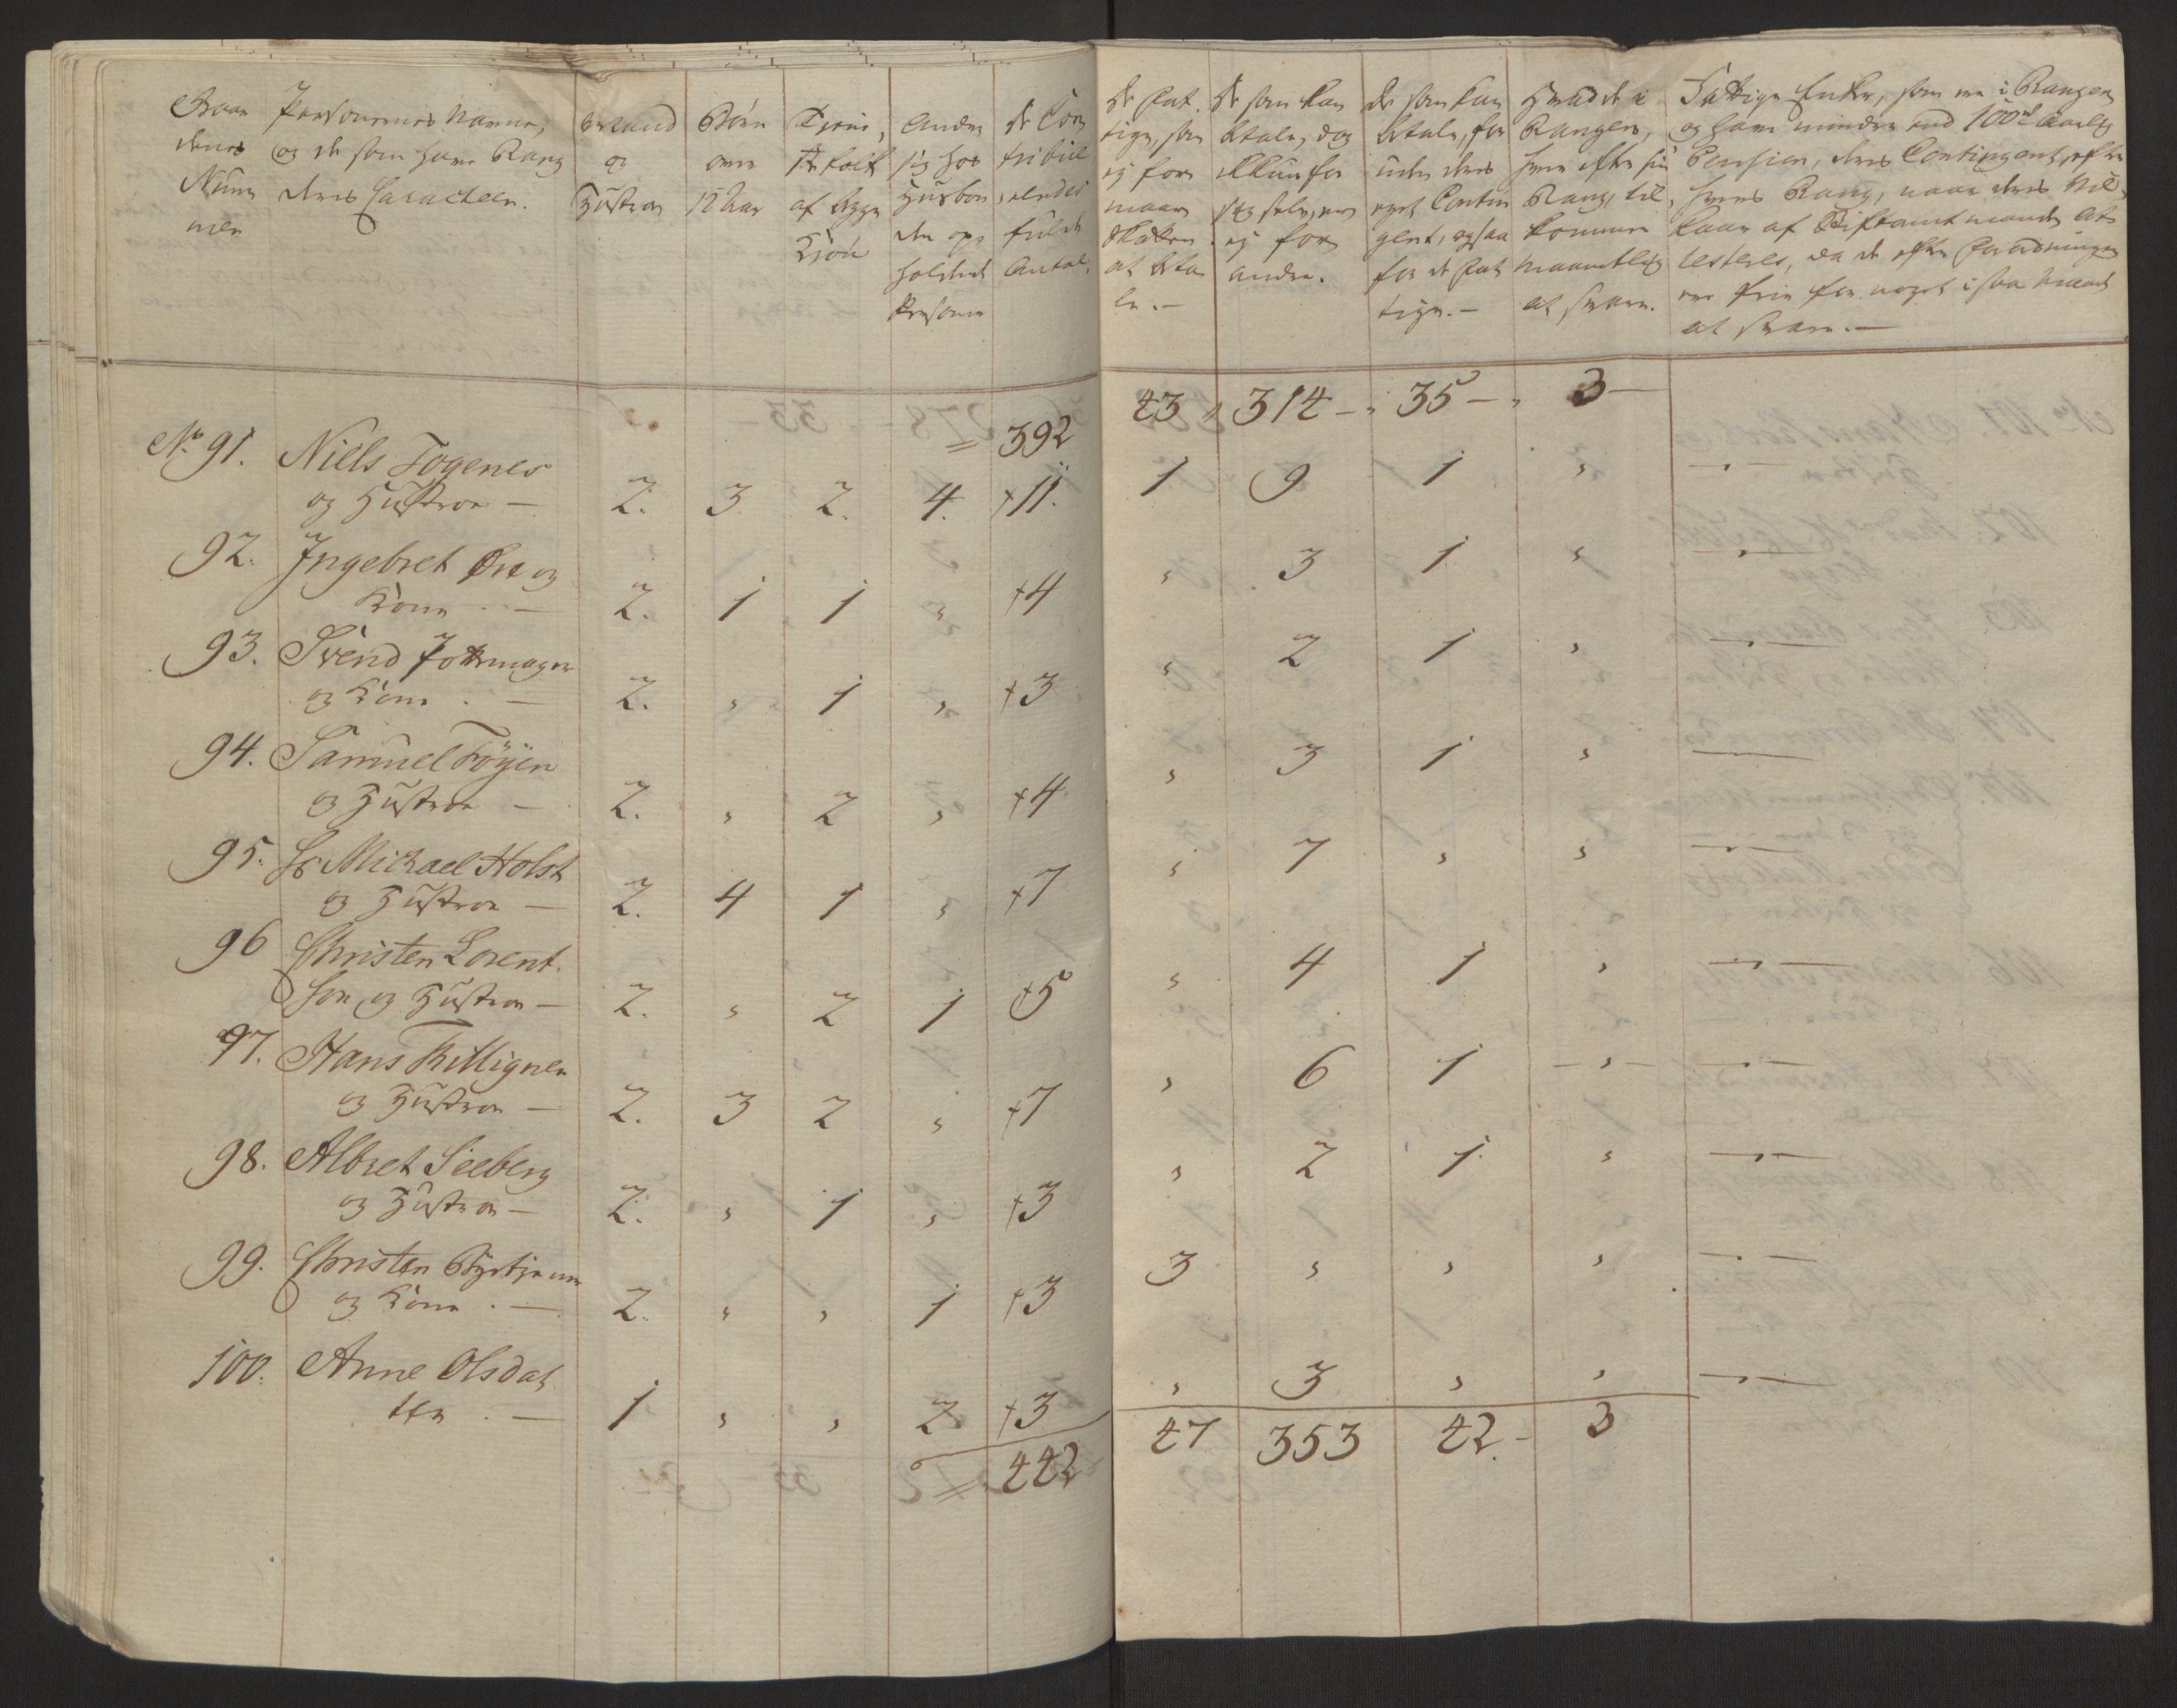 Gaar Personernes Navne,
denes og de som have Rang
Num deres Caracteer.
mer
Mand
og
Hustrue
Børn
over
12 Aar
Tienis,
te folk
af begge
Kiøn
Andre
sig hos
Husbon
den op,
holdende
Personer
de Con
tribue
rendes
fulde
Antal.
De Fat,
tige, som
ej for
maar
Skatten
at beta
le. —
De som kan
betale, dog
ikkun for
sig selv, men
ej for
andre.
De som kan
betale, for
uden deres
eget Contin
gent, ogsaa
for de Fat
tige. —
Hvad de i
Rangen,
hver efter sin
Rang, til,
kommer
maanetlig
at svare.
Fattige Enker, som ere i Rangen
og have mindre end 100 rd Aarlig
Pension, deres Contingent, efter
hvers Rang, naar deres Vil,
kaar af Stiftamtmanden At-
testeres, da de efter Forordningen
ere frie for noget i saa Maade
at svare. —
= 392 43 " 314 — " 35 — " 3 —
No 91. Niels Togenes
og Hustrue — 2. 3. 2. 4. +11. 1 9 1 " — " —
92. Ingebret Øre og
Kone . — 2. 1 1 " +4 " 3 1 " — " —
93. Svend Pottemager
og Kone . — 2. " 1 " +3 " 2 1 " — " —
94. Samuel Føyen
og Hustrue — 2. " 2 " +4 " 3 1 " —
95. Hr Michael Holst
og Hustrue — 2. 4 1 " +7 " 7 " " — " —
96 Christen Lorent.
son og Hustrue — 2. " 2 1 +5 " 4 1 " — " —
97. Hans Tillignen
og Hustrue — 2. 3 2 " +7 " 6 1 — " — — " —
98. Albret Seeberg
og Hustrue — 2. " 1 " +3 " 2 1 " — " —
99. Christen
og Kone . — 2. " " 1 +3 3 " " " — " —
100. Anne Olsdat
ter . — 1 " " 2 +3 " 3 " " — " —
= 442 47 353 42 — 3